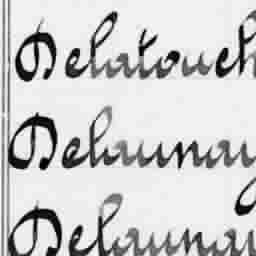 Delatouch
Delaunay
Delaunay